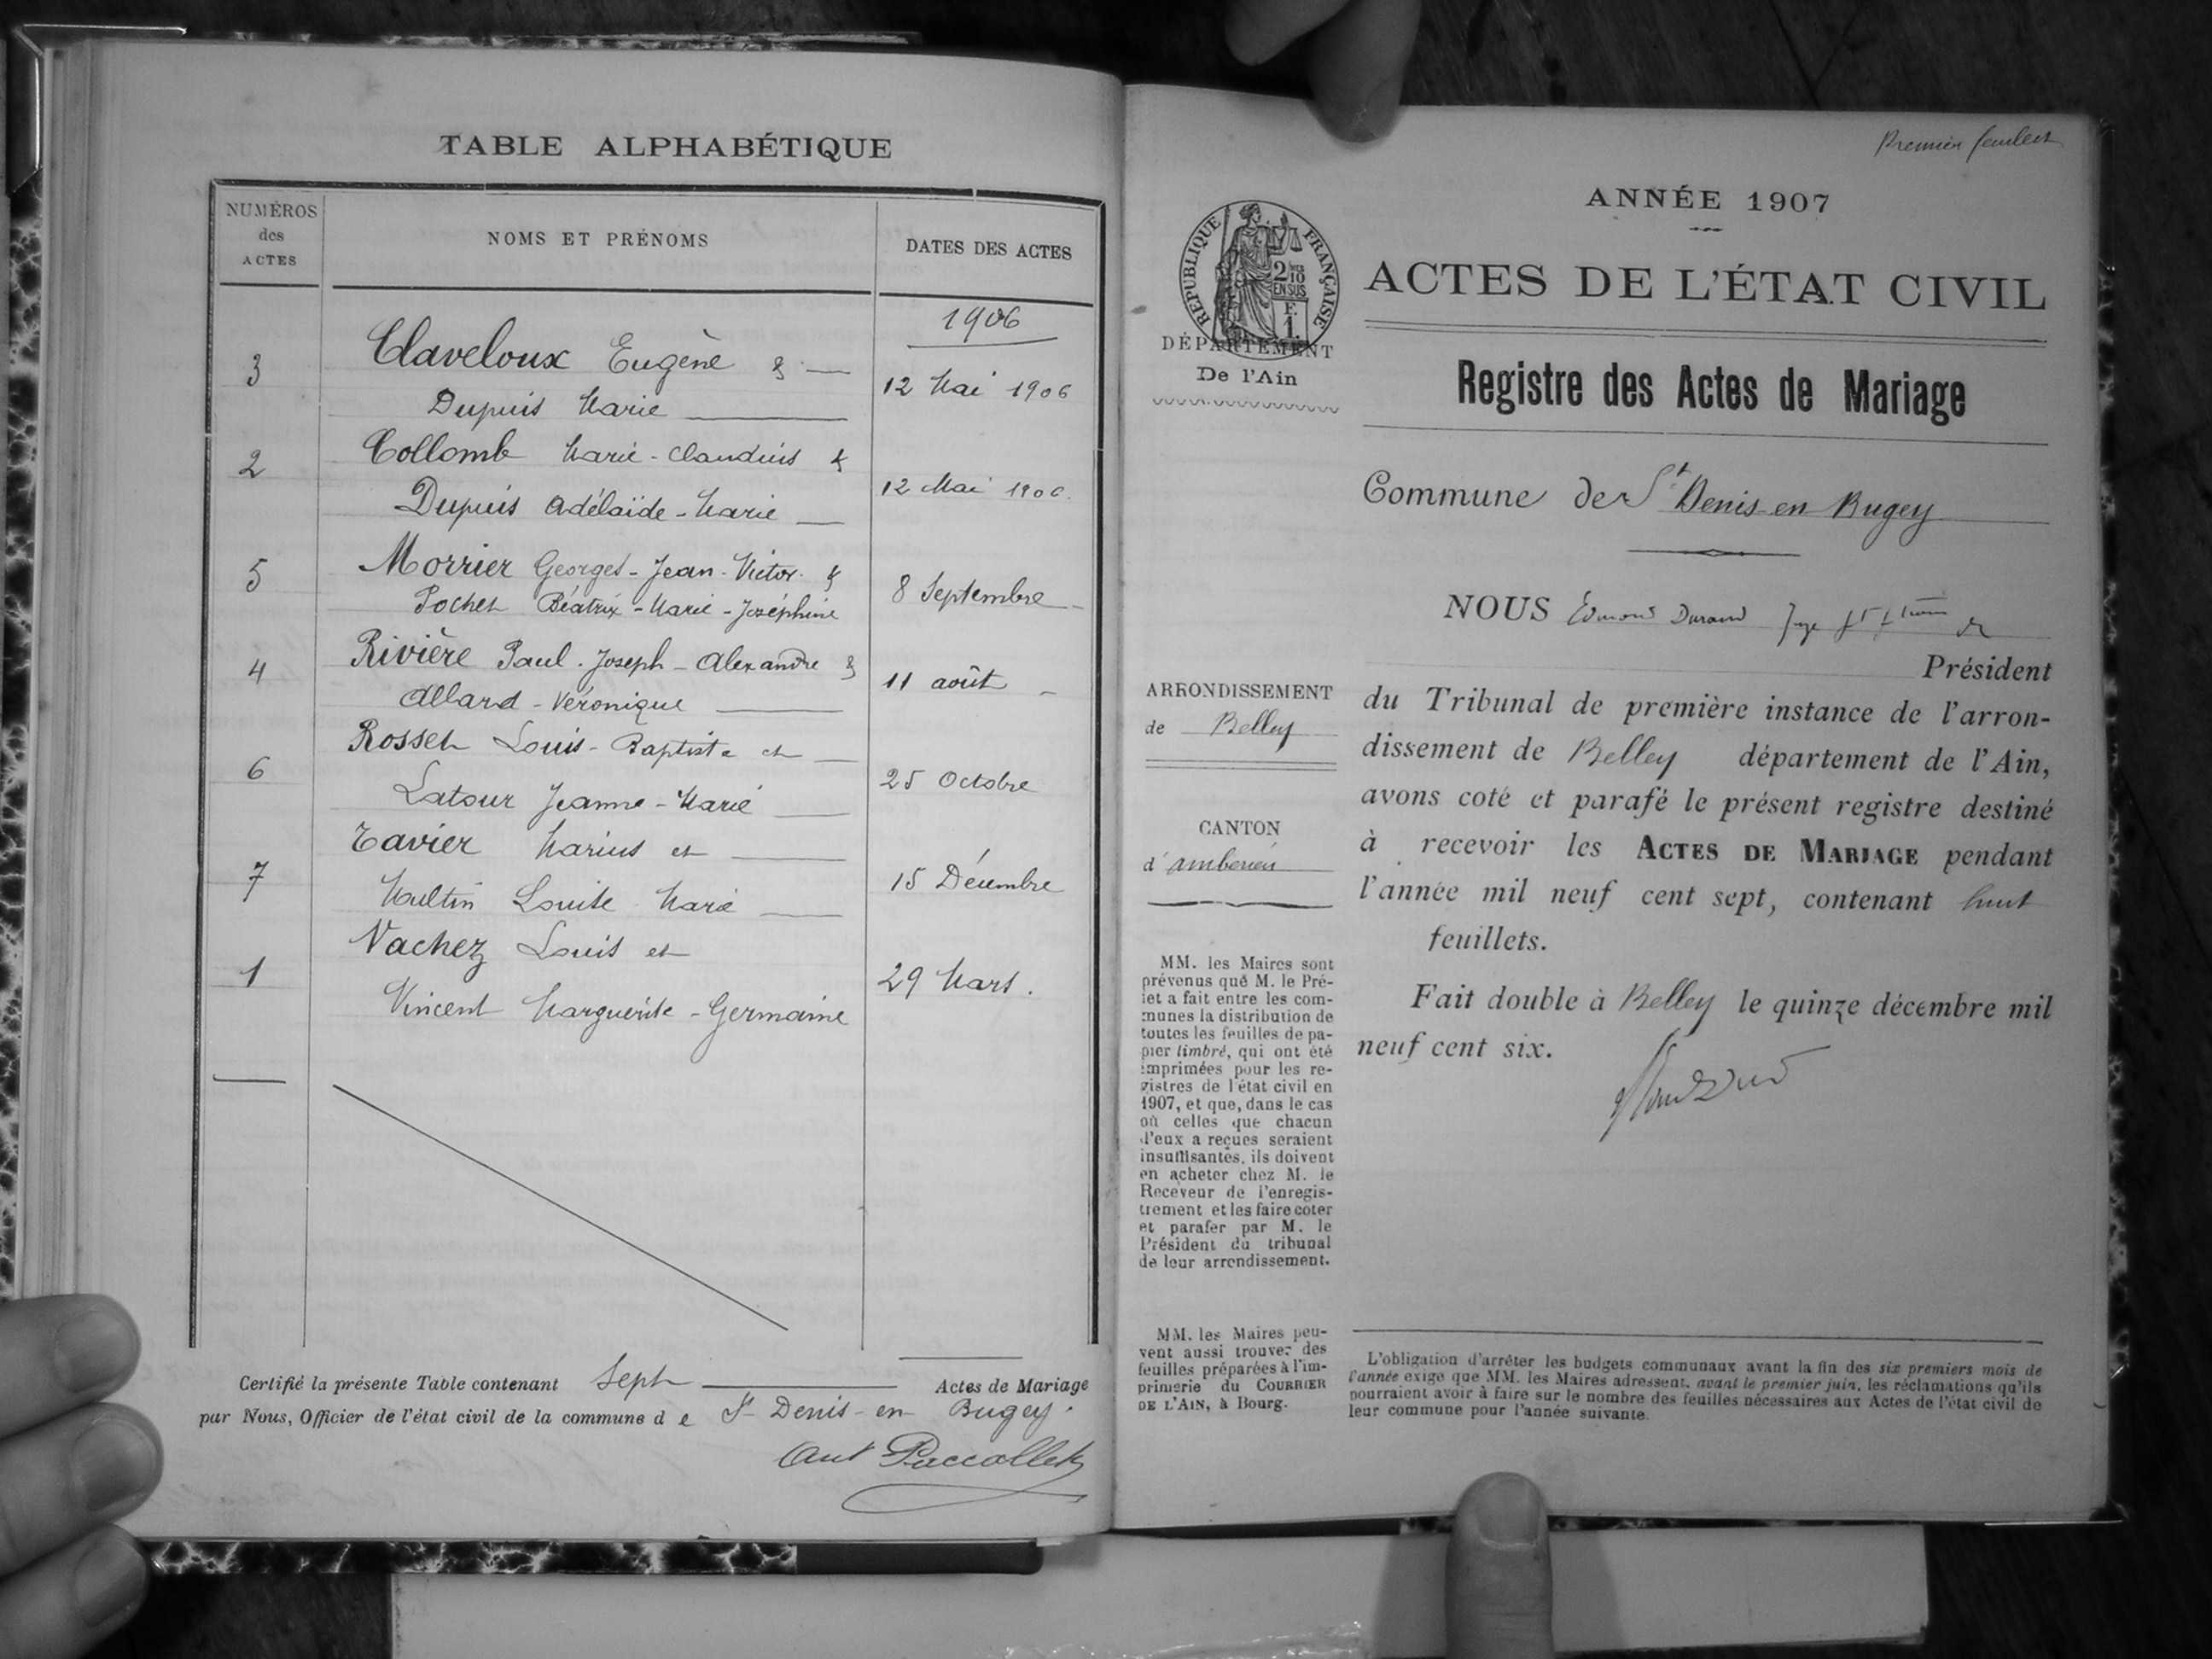 TABLE ALPHABÉTIQUE
NUMÉROS
des
ACTES
NOMS ET PRÉNOMS
DATES DES ACTES
1906
3
Claveloux Eugène &
12 Mai 1906
Dupuis Marie
2
Collomb Marie-Claudius &
12 Mai 1906.
Dupuis Adélaïde-Marie
5
Morrier Georges-Jean-Victor &
8 Septembre
Pochet Béatrix-Marie-Joséphine
4
Rivière Paul-Joseph-Alexandre &
11 août
Allard-Véronique
Rosset Louis-Baptiste et
6
25 Octobre
Latour Jeanne-Marie
Tavier Marius et
7
15 Décembre
Louise Marie
Vachez Louis et
1
29 Mars.
Vincent Marguerite-Germaine
Certifié la présente Table contenant Sept Actes de Mariage
par Nous, Officier de l'état civil de la commune de St Denis-en-Bugey.
Ant Paccallet
Premier feuillet
ANNÉE 1907
RÉPUBLIQUE FRANÇAISE
2/10
EN SUS
F.
1.
ACTES DE L'ÉTAT CIVIL
DÉPARTEMENT
De l'Ain
Registre des Actes de Mariage
Commune de St Denis-en Bugey
NOUS Edmond Durand Juge
Président
ARRONDISSEMENT
de Belley
du Tribunal de première instance de l'arron-
dissement de Belley département de l'Ain,
avons coté et parafé le présent registre destiné
CANTON
d'ambérieu
à recevoir les ACTES DE MARIAGE pendant
l'année mil neuf cent sept, contenant huit
feuillets.
Fait double à Belley le quinze décembre mil
neuf cent six.
MM. les Maires sont
prévenus que M. le Pré-
fet a fait entre les com-
munes la distribution de
toutes les feuilles de pa-
pier timbré, qui ont été
imprimées pour les re-
gistres de l'état civil en
1907, et que, dans le cas
où celles que chacun
d'eux a reçues seraient
insuffisantes, ils doivent
en acheter chez M. le
Receveur de l'enregis-
trement et les faire coter
et parafer par M. le
Président du tribunal
de leur arrondissement.
MM. les Maires peu-
vent aussi trouver des
feuilles préparées à l'im-
primerie du COURRIER
DE L'AIN, à Bourg.
L'obligation d'arrêter les budgets communaux avant la fin des six premiers mois de
l'année exige que MM. les Maires adressent, avant le premier juin, les réclamations qu'ils
pourraient avoir à faire sur le nombre des feuilles nécessaires aux Actes de l'état civil de
leur commune pour l'année suivante.